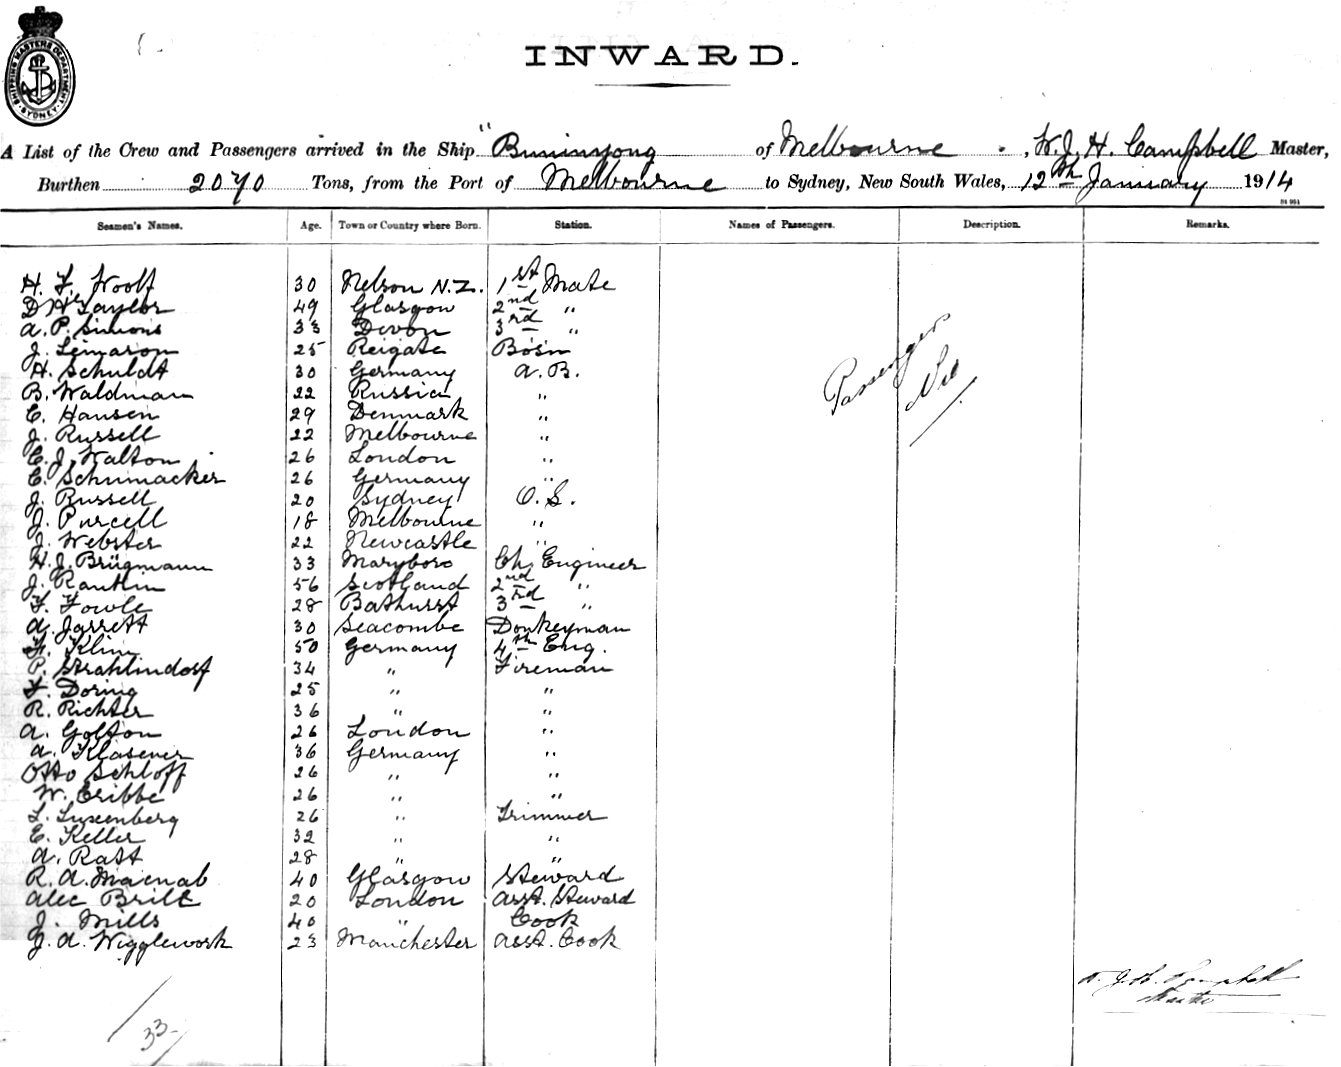 SHIPPING MASTERS DEPARTMENT SYDNEY
INWARD.
A List of the Crew and Passengers arrived in the Ship "Buninyong of Melbourne, W. J. H. Campbell Master,
Burthen 2070 Tons, from the Port of Melbourne to Sydney, New South Wales, 12th January 1914
Seamen's Names. Age. Town or Country where Born. Station. Names of Passengers. Description. Remarks.
H. F. Woolf 30 Nelson N.Z. 1st Mate
D H Taylor 49 Glasgow 2nd "
A. P. Simons 33 Devon 3rd "
J. Lemaron 25 Reigate Bosn
H. Schuldt 30 Germany A. B.
B. Waldman 22 Russia "
C. Hansen 29 Denmark "
J. Russell 22 Melbourne "
C. J. Walton 26 London "
E. Schumacker 26 Germany "
J. Russell 20 Sydney O. S.
J. Purcell 18 Melbourne "
J. Webster 22 Newcastle "
H. J. Brügmann 33 Maryboro Ch. Engineer
J. Rankin 56 Scotland 2nd "
F. Fowle 28 Bathurst 3rd "
A. Jarrett 30 Seacombe Donkeyman
H. Klim 50 Germany 4th Eng.
P. Strahlindorf 34 " Fireman
F. Doring 25 " "
R. Richter 36 " "
A. Golton 26 London "
A. Klasener 36 Germany "
Otto Schloff 26 " "
W. Cribbe 26 " "
L. Luxenberg 26 " Trimmer
E. Keller 32 " "
A. Rast 28 " "
R. A. Macnab 40 Glasgow Steward
Alec Brilt 20 London Asst. Steward
J. Mills 40 " Cook
J. A. Wigglework 23 Manchester Asst. Cook
Passengers
Nil
W. J. H. Campbell
Master
33